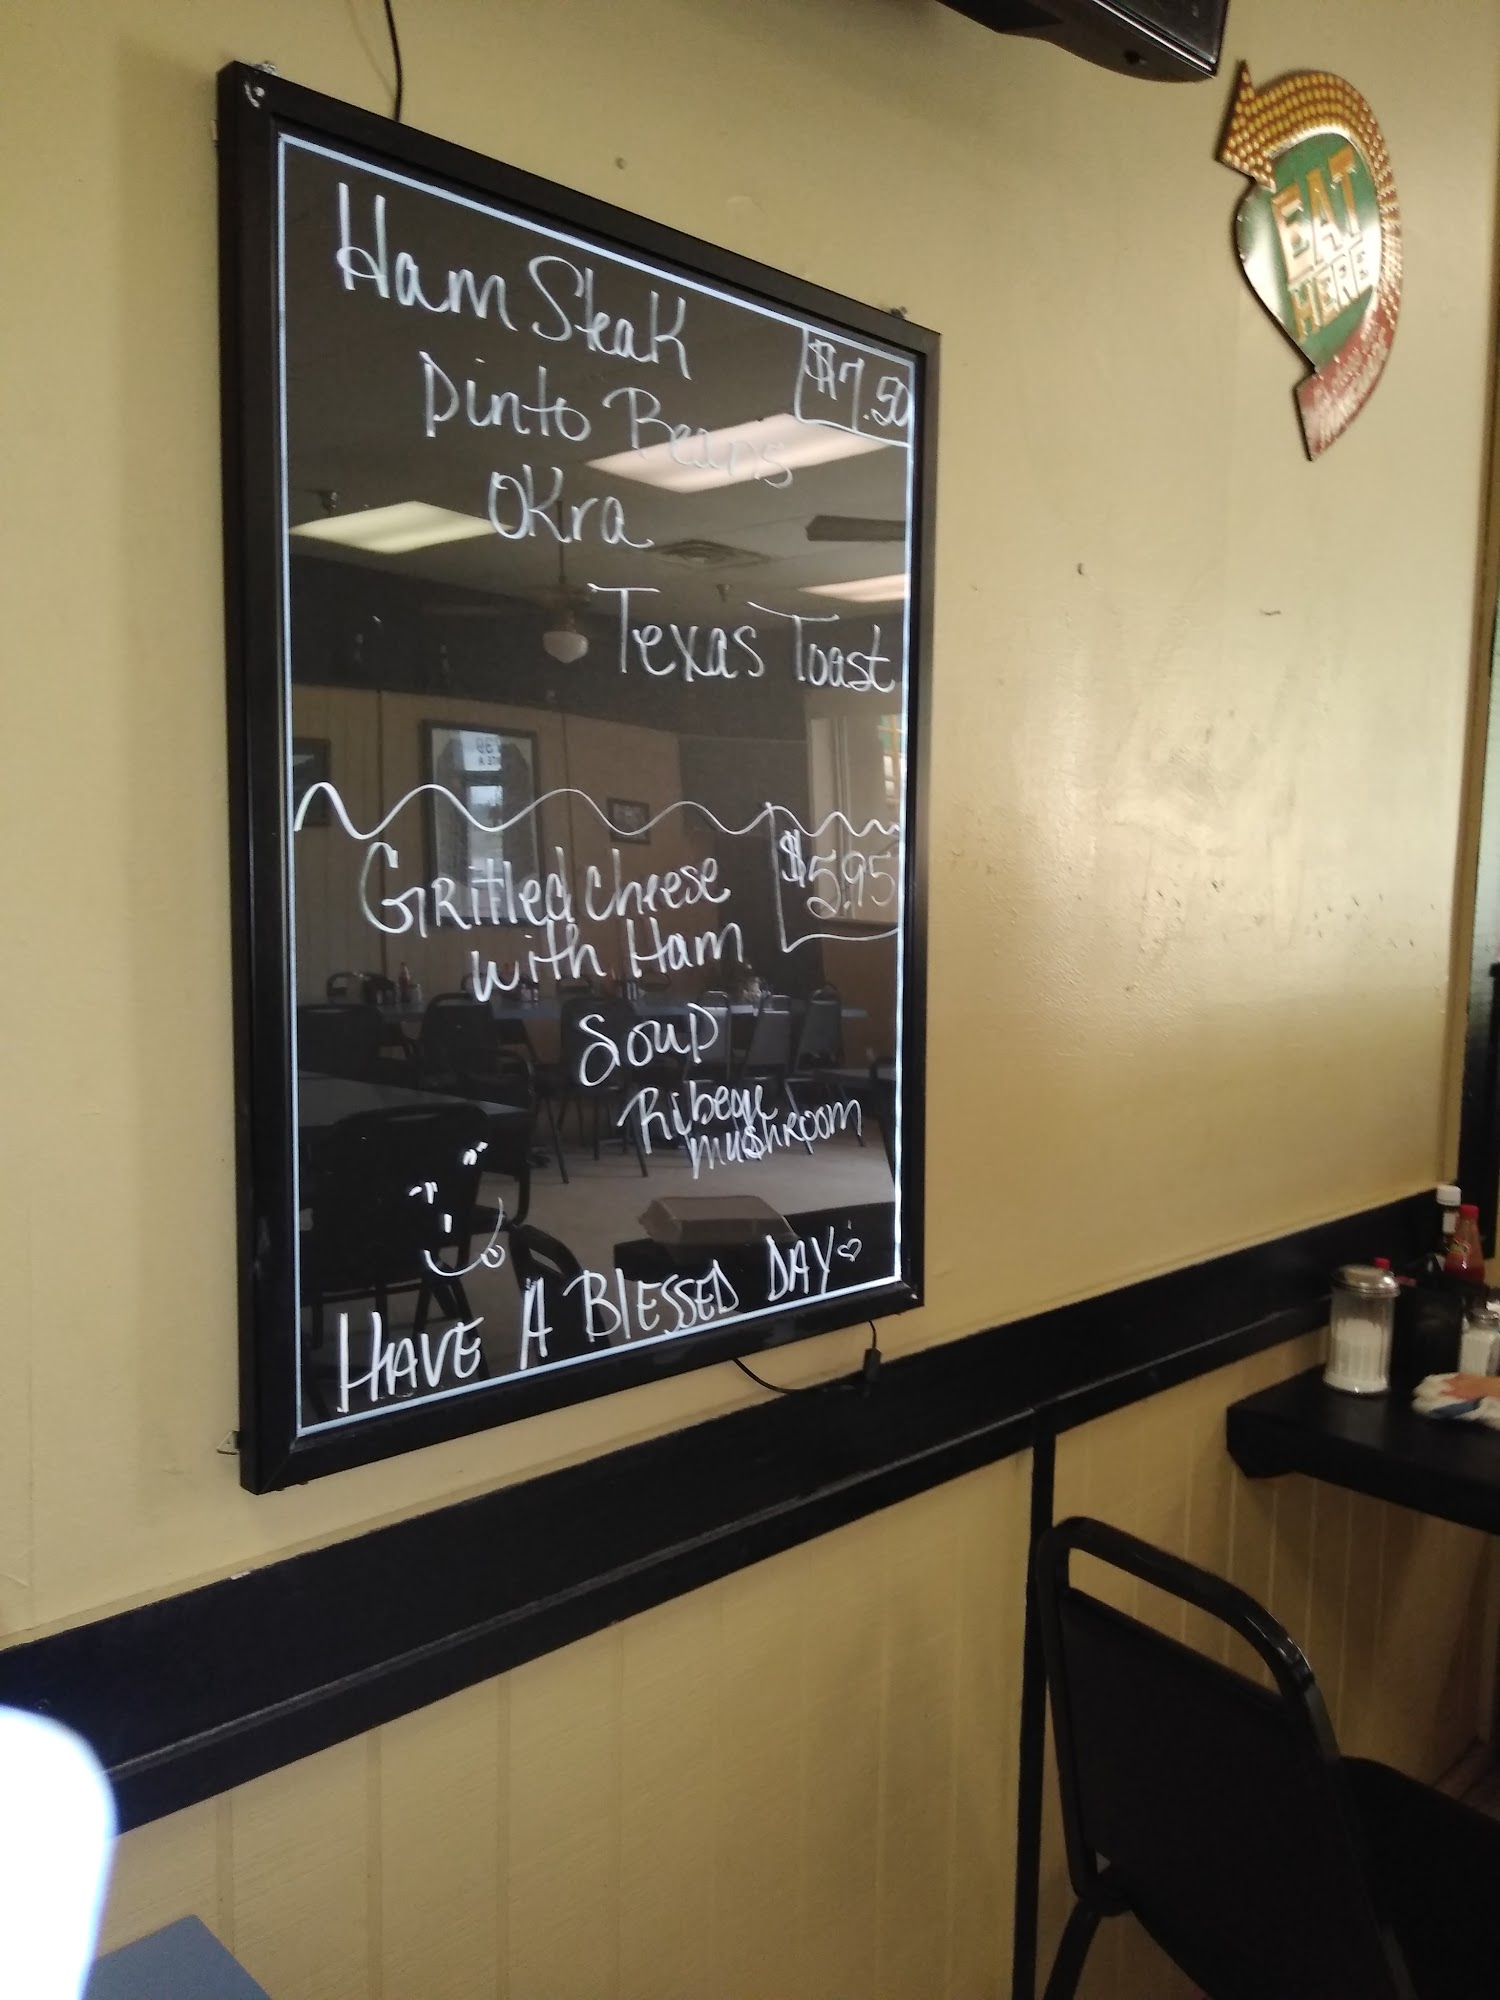 Ham Steak
$7.50
Pinto Beans
Okra
Texas Toast
Grilled cheese
$5.95
with Ham
Soup
Ribeye
mushroom
HAVE A BLESSED DAY
EAT
HERE